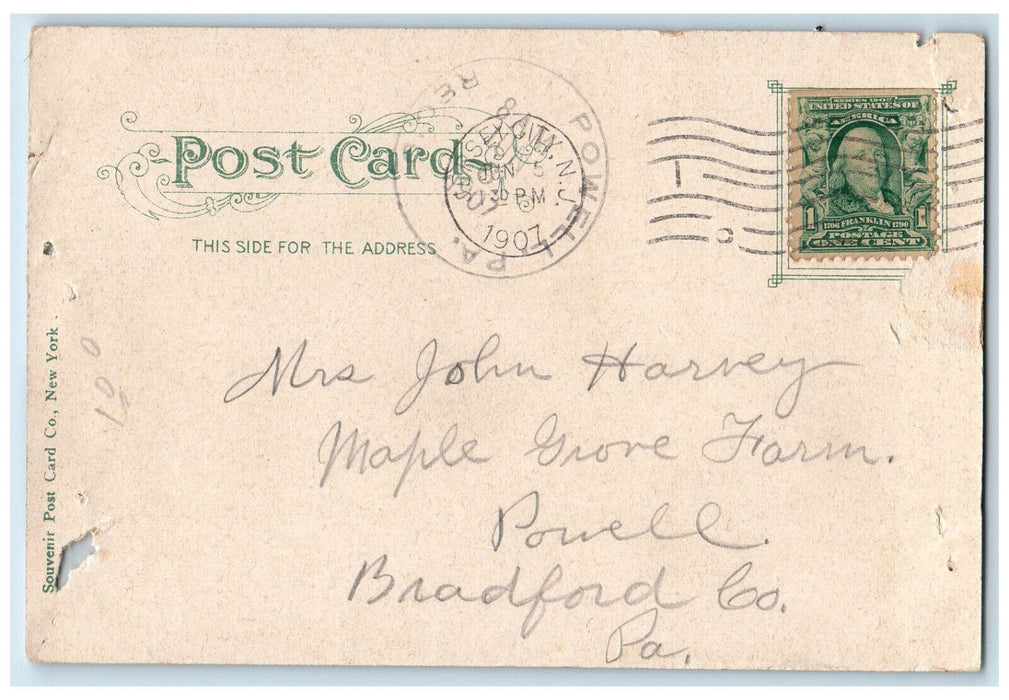 POST CARD
THIS SIDE FOR THE ADDRESS
POWELL PA. REC
JERSEY CITY, N.J.
JUN 5
30 PM
1907
SERIES 1902
UNITED STATES OF
AMERICA
1 1
1706 FRANKLIN 1790
POSTAGE
ONE CENT
Mrs John Harvey
Maple Grove Farm.
Powell.
Bradford Co.
Pa.
Souvenir Post Card Co., New York